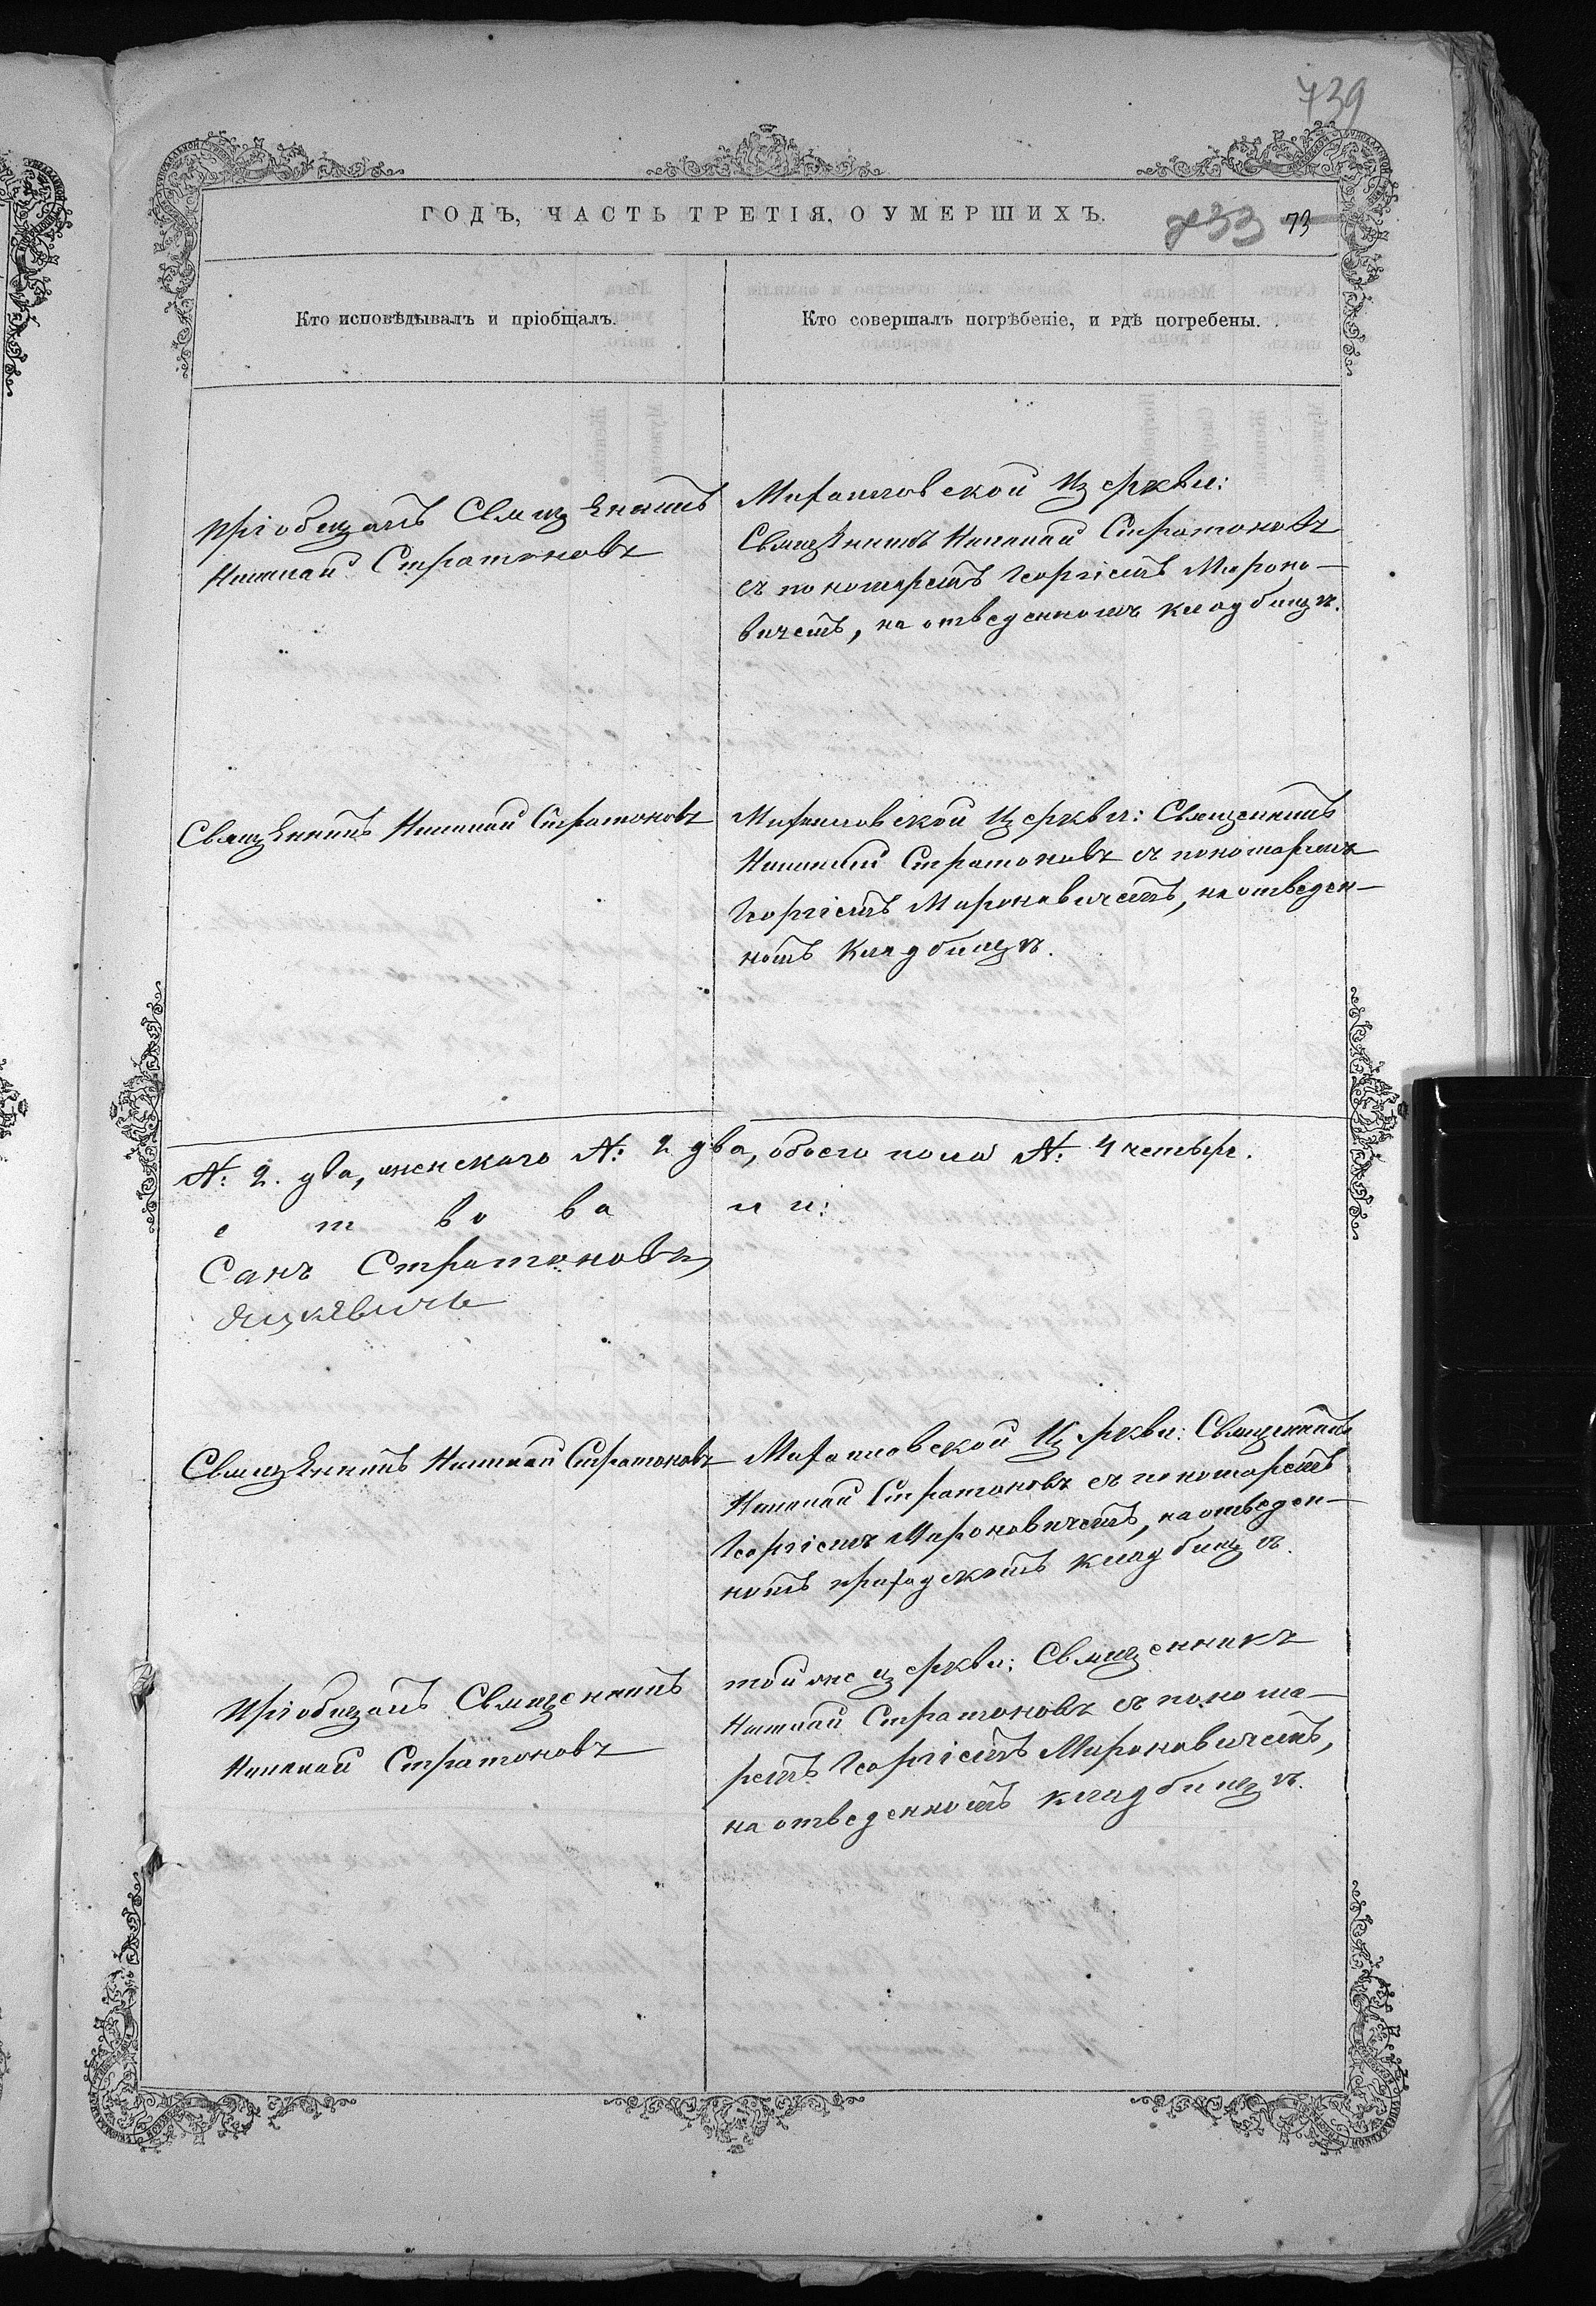 739
ГОДЪ, ЧАСТЬ ТРЕТІЯ, О УМЕРШИХЪ.
733 73
Кто исповѣдывалъ и пріобщалъ.
Кто совершалъ погрѣбеніе, и гдѣ погребены.
Пріобщалъ Священникъ
Николай Стратоновъ
Михайловской Церкви:
Священникъ Николай Стратоновъ
съ пономаремъ Георгіемъ Мироно-
вичемъ, на отведенномъ кладбищѣ.
Священникъ Николай Стратоновъ
Михайловской Церкви: Священникъ
Николай Стратоновъ съ пономаремъ
Георгіемъ Мироновичемъ, на отведен-
номъ кладбищѣ.
№: 2. два, женскаго №: 2 два, обоего пола №: 4 четыре.
с т в о в а л и:
Стратоновъ
Священникъ Николай Стратоновъ
Михайловской Церкви: Священникъ
Николай Стратоновъ съ пономаремъ
Георгіемъ Мироновичемъ, на отведен-
номъ приходскомъ кладбищѣ.
Пріобщалъ Священникъ
Николай Стратоновъ
той же церкви: Священникъ
Николай Стратоновъ съ понома-
ремъ Георгіемъ Мироновичемъ,
на отведенномъ кладбищѣ.